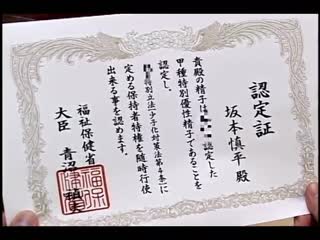 認定証
坂本慎平 殿
貴殿の精子は 認定した
甲種特別優性精子であることを
認定し、
特別立法「少子化対策法第4条」に
定める保持者特権を随時行使
出来る事を認めます。
福祉保健省
大臣 青沼